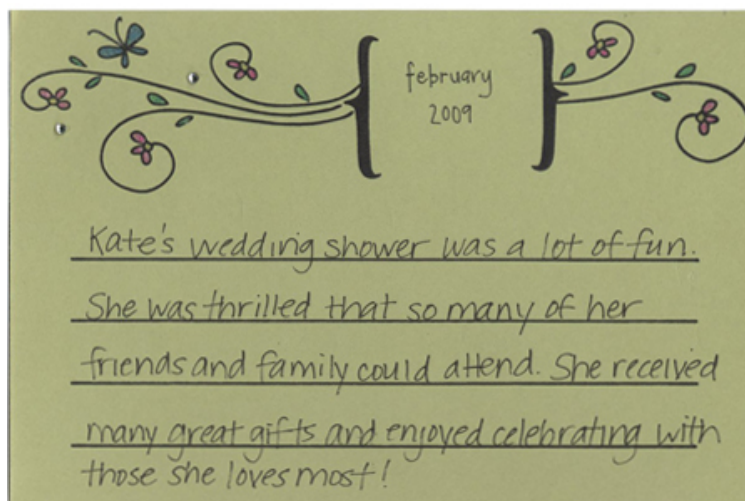 february
2009
Kate's wedding shower was a lot of fun.
She was thrilled that so many of her
friends and family could attend. She received
many great gifts and enjoyed celebrating with
those she loves most!